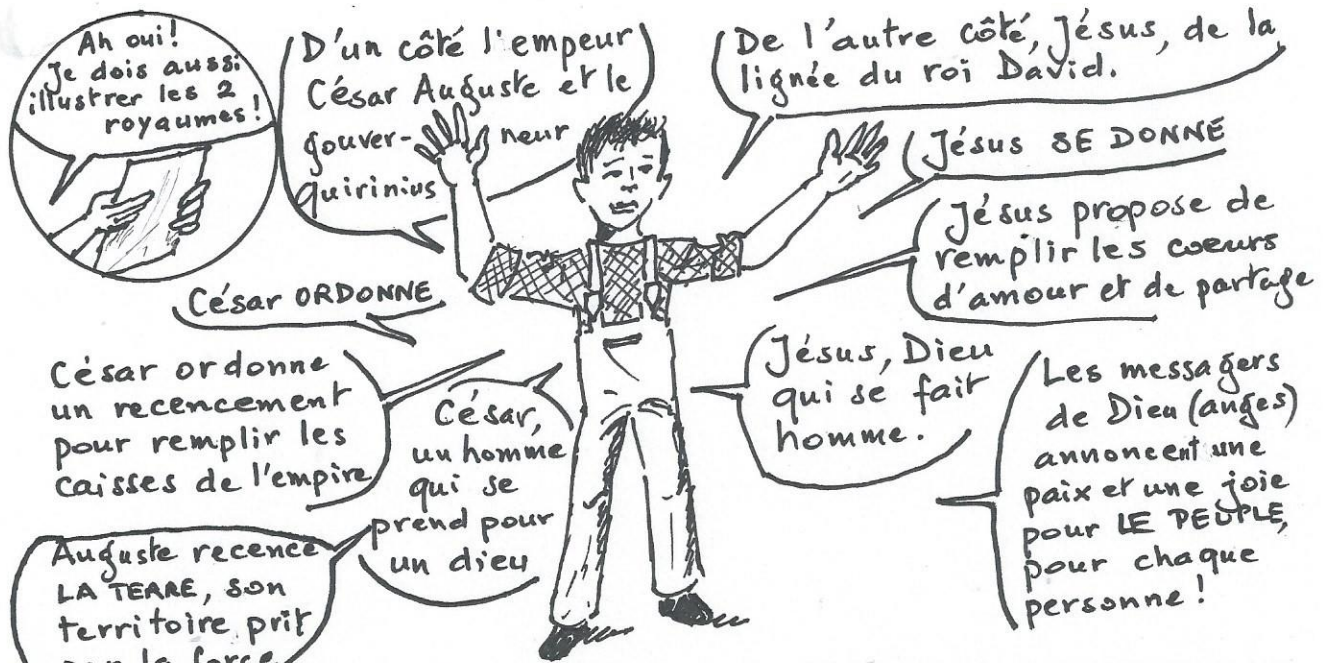 Ah oui!
Je dois aussi
illustrer les 2
royaumes!
D'un côté l'empeur
César Auguste et le
gouver-neur
quirinius
De l'autre côté, Jésus, de la
lignée du roi David.
Jésus SE DONNE
Jésus propose de
remplir les coeurs
d'amour et de partage
César ORDONNE
César ordonne
un recencement
pour remplir les
caisses de l'empire
César,
un homme
qui se
prend pour
un dieu
Jésus, Dieu
qui se fait
homme.
Les messagers
de Dieu (anges)
annoncent une
paix et une joie
pour LE PEUPLE,
pour chaque
personne!
Auguste recence
LA TERRE, son
territoire prit
par la force